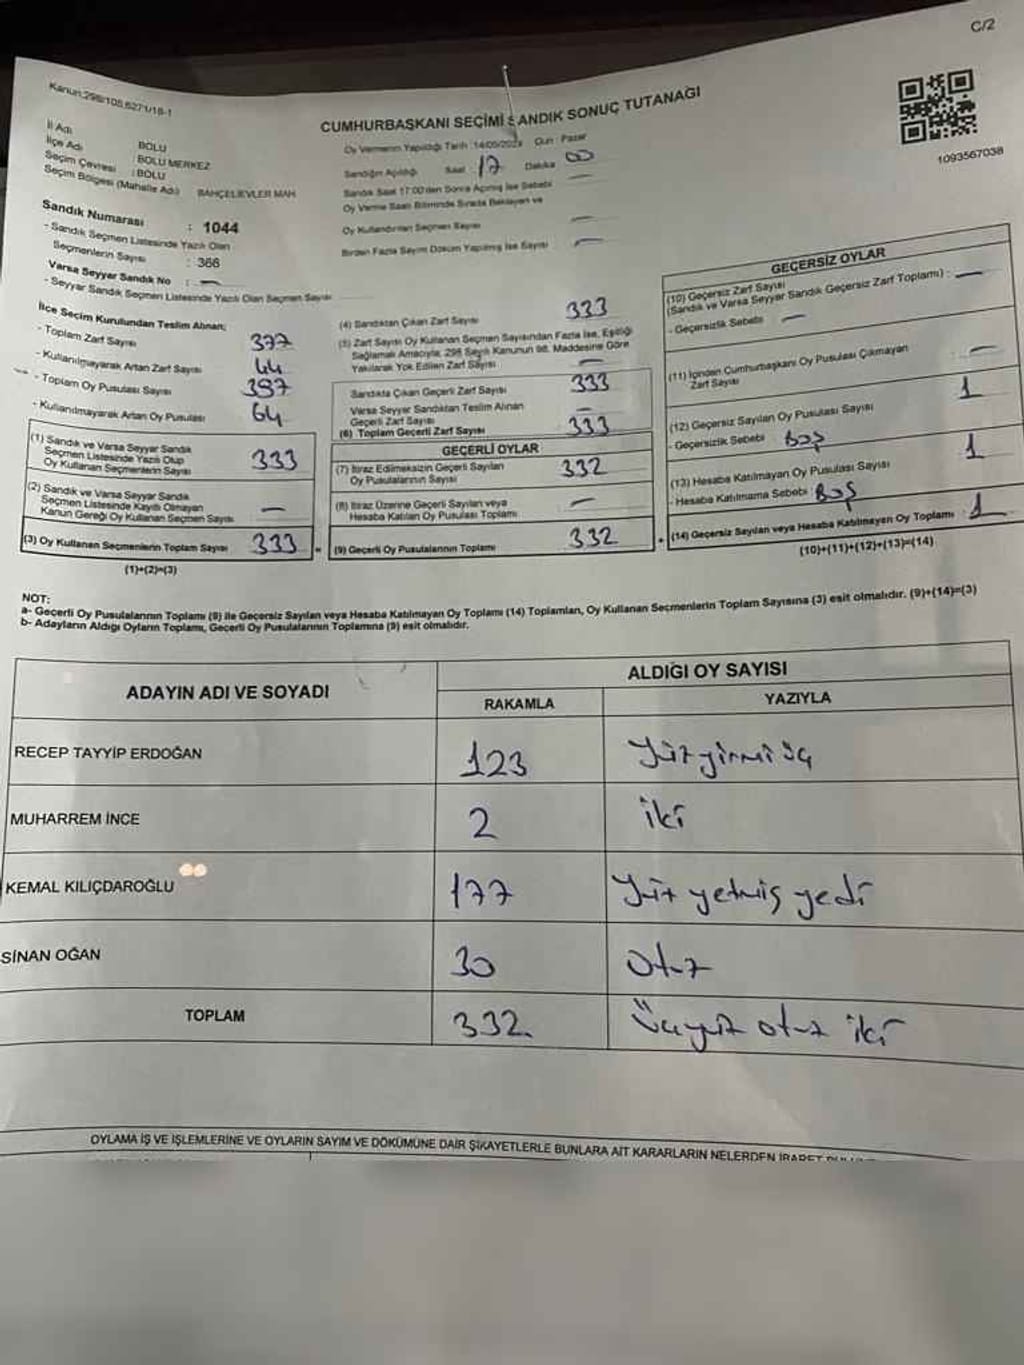 C/2
Kanun:298/105,6271/18-1
CUMHURBAŞKANI SEÇİMİ SANDIK SONUÇ TUTANAĞI
1093567038
İl Adı : BOLU
İlçe Adı : BOLU MERKEZ
Seçim Çevresi : BOLU
Seçim Bölgesi (Mahalle Adı) BAHÇELİEVLER MAH
Sandık Numarası : 1044
- Sandık Seçmen Listesinde Yazılı Olan
Seçmenlerin Sayısı : 366
Varsa Seyyar Sandık No : —
- Seyyar Sandık Seçmen Listesinde Yazılı Olan Seçmen Sayısı
Oy Vermenin Yapıldığı Tarih :14/05/2023 Gün : Pazar
Sandığın Açıldığı Saat 17 Dakika 00
Sandık Saat 17:00'den Sonra Açılmış İse Sebebi —
Oy Verme Saati Bitiminde Sırada Bekleyen ve
Oy Kullandırılan Seçmen Sayısı —
Birden Fazla Sayım Döküm Yapılmış İse Sayısı —
İlçe Seçim Kurulundan Teslim Alınan;
- Toplam Zarf Sayısı 377
- Kullanılmayarak Artan Zarf Sayısı 44
- Toplam Oy Pusulası Sayısı 397
- Kullanılmayarak Artan Oy Pusulası 64
(1) Sandık ve Varsa Seyyar Sandık
Seçmen Listesinde Yazılı Olup
Oy Kullanan Seçmenlerin Sayısı 333
(2) Sandık ve Varsa Seyyar Sandık
Seçmen Listesinde Kayıtlı Olmayan
Kanun Gereği Oy Kullanan Seçmen Sayısı —
(3) Oy Kullanan Seçmenlerin Toplam Sayısı 333
(1)+(2)=(3)
(4) Sandıktan Çıkan Zarf Sayısı 333
(5) Zarf Sayısı Oy Kullanan Seçmen Sayısından Fazla İse, Eşitliği
Sağlamak Amacıyla, 298 Sayılı Kanunun 98. Maddesine Göre
Yakılarak Yok Edilen Zarf Sayısı —
Sandıkta Çıkan Geçerli Zarf Sayısı 333
Varsa Seyyar Sandıktan Teslim Alınan
Geçerli Zarf Sayısı —
(6) Toplam Geçerli Zarf Sayısı 333
GEÇERLİ OYLAR
(7) İtiraz Edilmeksizin Geçerli Sayılan
Oy Pusulalarının Sayısı 332
(8) İtiraz Üzerine Geçerli Sayılan veya
Hesaba Katılan Oy Pusulası Toplamı —
= (9) Geçerli Oy Pusulalarının Toplamı 332
GEÇERSİZ OYLAR
(10) Geçersiz Zarf Sayısı
(Sandık ve Varsa Seyyar Sandık Geçersiz Zarf Toplamı) : —
- Geçersizlik Sebebi —
(11) İçinden Cumhurbaşkanı Oy Pusulası Çıkmayan
Zarf Sayısı —
(12) Geçersiz Sayılan Oy Pusulası Sayısı 1
- Geçersizlik Sebebi BOŞ
(13) Hesaba Katılmayan Oy Pusulası Sayısı 1
- Hesaba Katılmama Sebebi BOŞ
+ (14) Geçersiz Sayılan veya Hesaba Katılmayan Oy Toplamı : 1
(10)+(11)+(12)+(13)=(14)
NOT:
a- Geçerli Oy Pusulalarının Toplamı (9) ile Geçersiz Sayılan veya Hesaba Katılmayan Oy Toplamı (14) Toplamları, Oy Kullanan Seçmenlerin Toplam Sayısına (3) eşit olmalıdır. (9)+(14)=(3)
b- Adayların Aldığı Oyların Toplamı, Geçerli Oy Pusulalarının Toplamına (9) eşit olmalıdır.
ADAYIN ADI VE SOYADI ALDIĞI OY SAYISI
RAKAMLA YAZIYLA
RECEP TAYYİP ERDOĞAN 123 Yüzyirmi üç
MUHARREM İNCE 2 iki
KEMAL KILIÇDAROĞLU 177 Yüz yetmiş yedi
SİNAN OĞAN 30 Otuz
TOPLAM 332 Üçyüz otuz iki
OYLAMA İŞ VE İŞLEMLERİNE VE OYLARIN SAYIM VE DÖKÜMÜNE DAİR ŞİKAYETLERLE BUNLARA AİT KARARLARIN NELERDEN İBARET